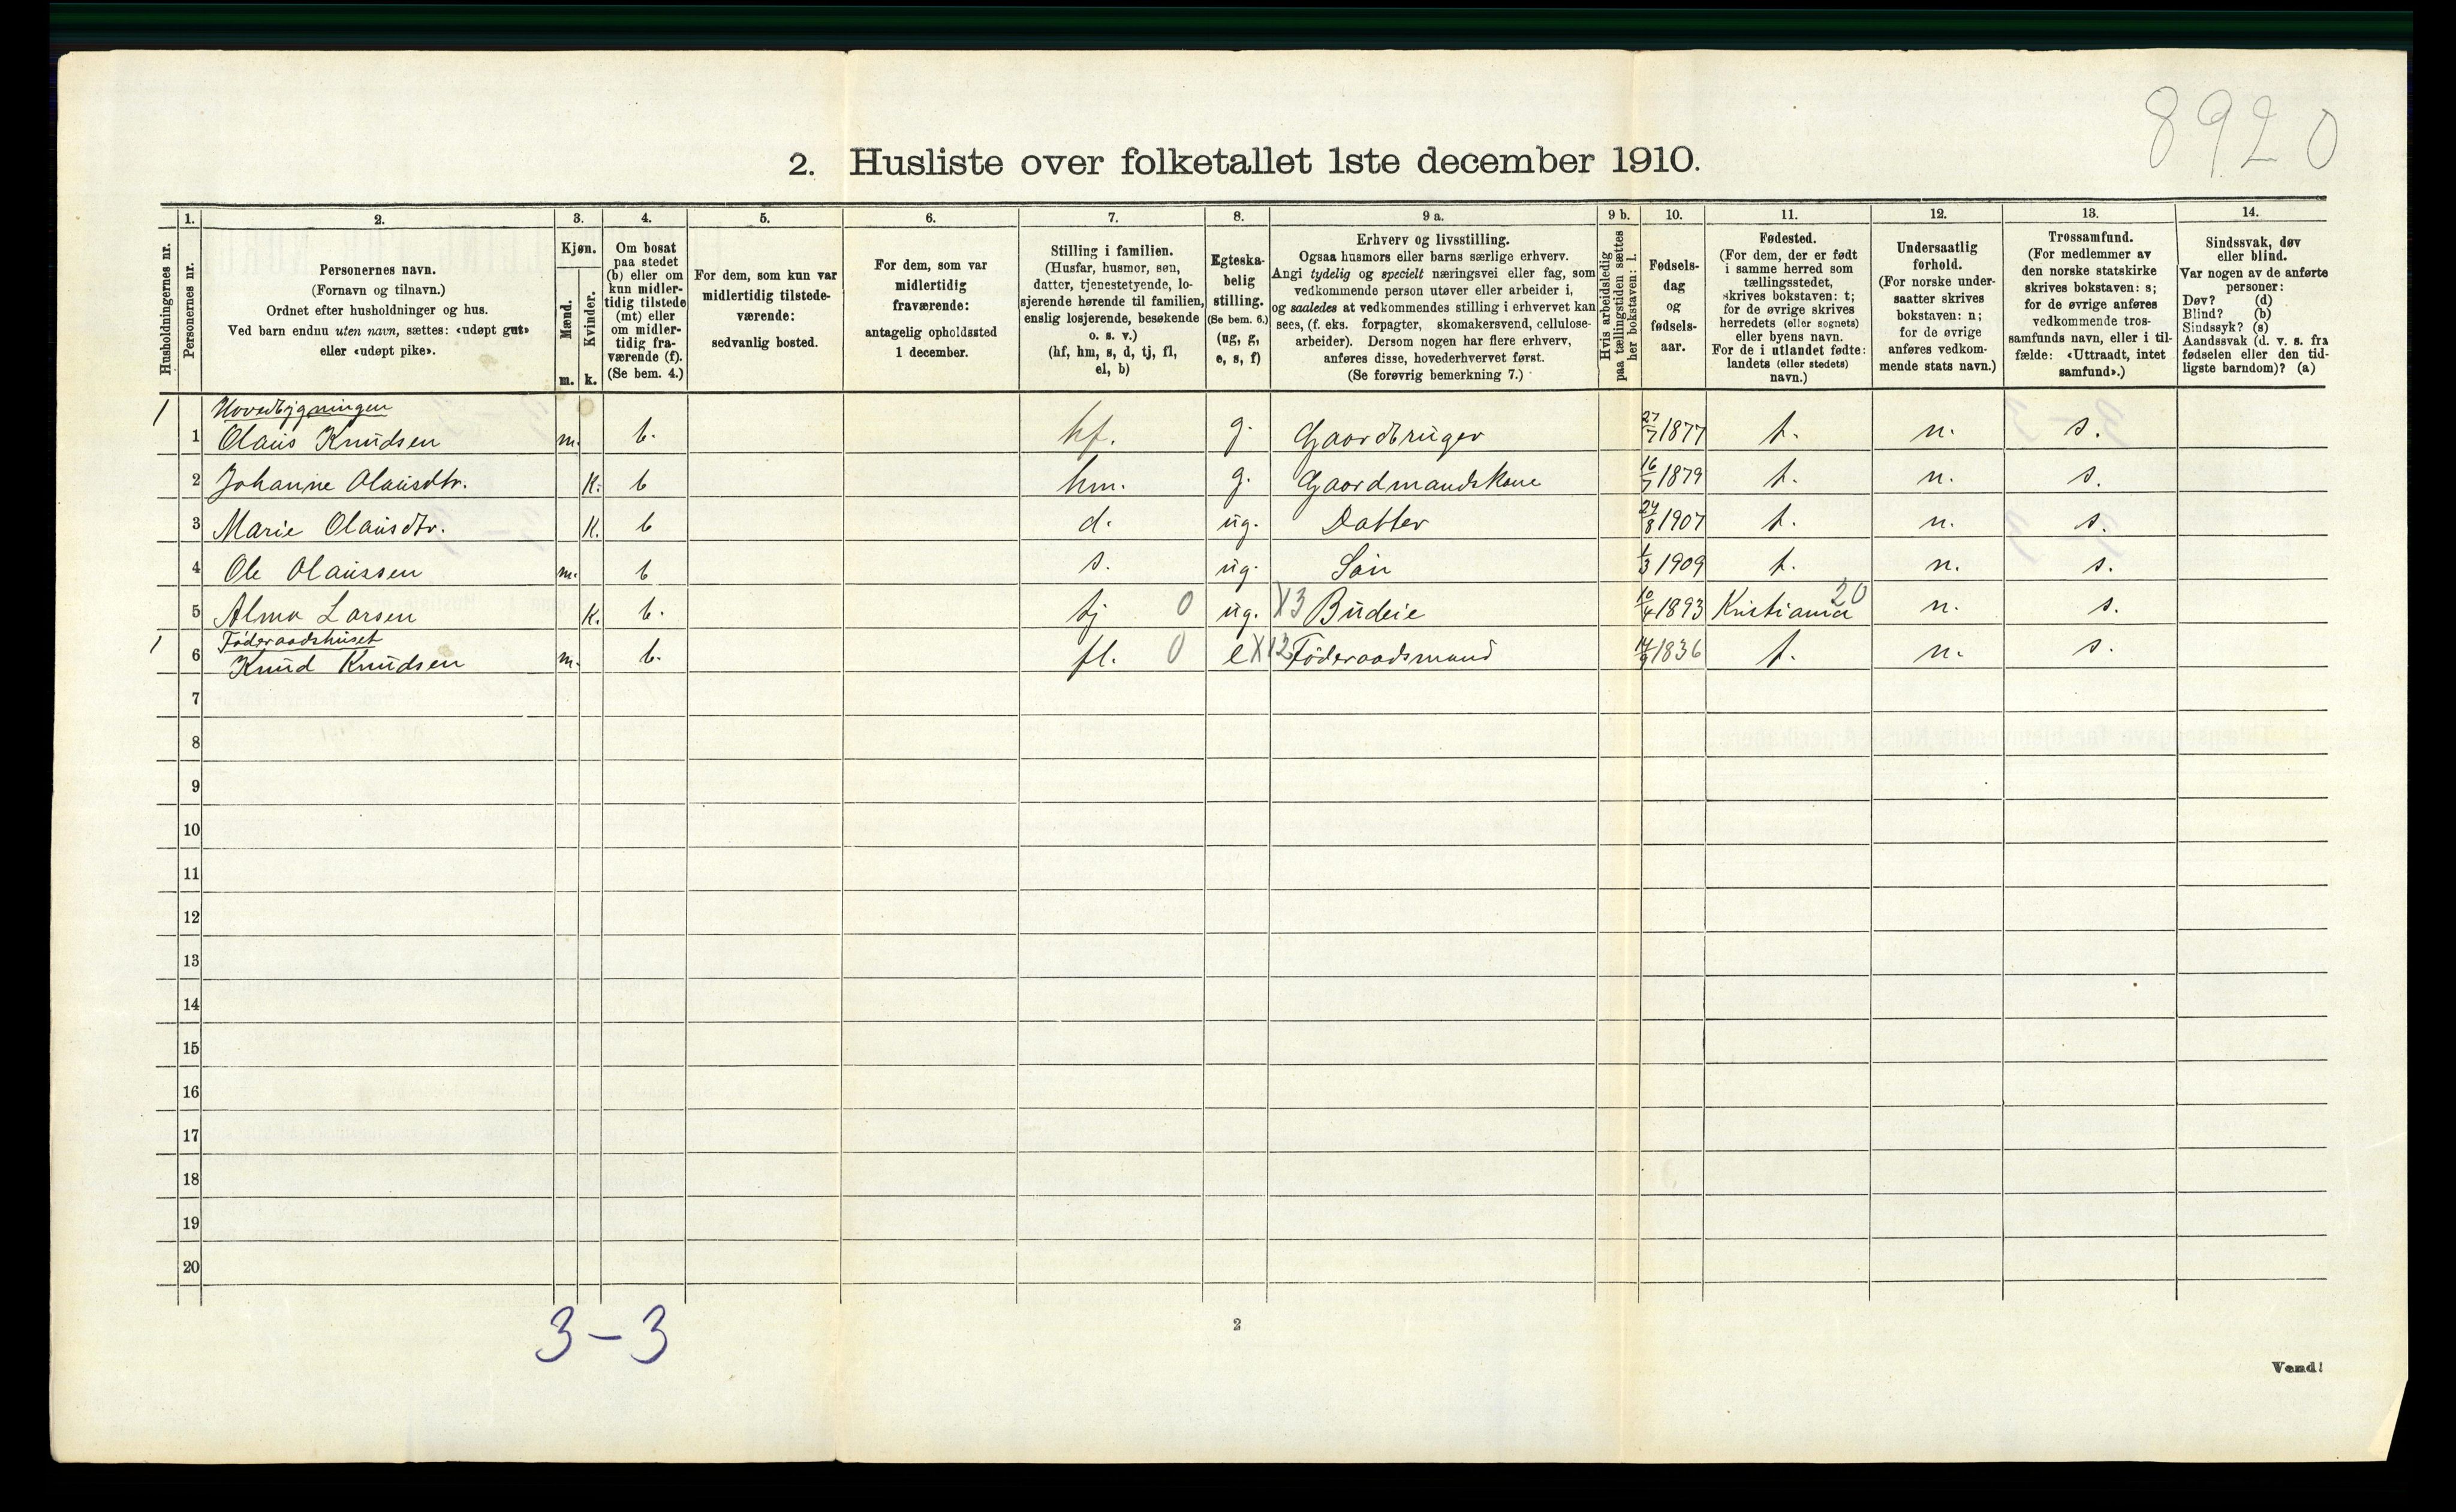 8920
2. Husliste over folketallet 1ste december 1910.
Husholdningernes nr.
1.
Personernes nr.
2.
Personernes navn.
(Fornavn og tilnavn.)
Ordnet efter husholdninger og hus.
Ved barn endnu uten navn, sættes: «udøpt gut»
eller «udøpt pike».
3.
Kjøn.
Mænd.
Kvinder.
m. k.
4.
Om bosat
paa stedet
(b) eller om
kun midler-
tidig tilstede
(mt) eller
om midler-
tidig fra-
værende (f).
(Se bem. 4.)
5.
For dem, som kun var
midlertidig tilstede-
værende:
sedvanlig bosted.
6.
For dem, som var
midlertidig
fraværende:
antagelig opholdssted
1 december.
7.
Stilling i familien.
(Husfar, husmor, søn,
datter, tjenestetyende, lo-
sjerende hørende til familien,
enslig losjerende, besøkende
o. s. v.)
(hf, hm, s, d, tj, fl,
el, b)
8.
Egteska-
belig
stilling.
(Se bem. 6.)
(ug, g,
e, s, f)
9 a.
Erhverv og livsstilling.
Ogsaa husmors eller barns særlige erhverv.
Angi tydelig og specielt næringsvei eller fag, som
vedkommende person utøver eller arbeider i,
og saaledes at vedkommendes stilling i erhvervet kan
sees, (f. eks. forpagter, skomakersvend, cellulose-
arbeider). Dersom nogen har flere erhverv,
anføres disse, hovederhvervet først.
(Se forøvrig bemerkning 7.)
9 b.
Hvis arbeidsledig
paa tællingstiden sættes
her bokstaven: l.
10.
Fødsels-
dag
og
fødsels-
aar.
11.
Fødested.
(For dem, der er født
i samme herred som
tællingsstedet,
skrives bokstaven: t;
for de øvrige skrives
herredets (eller sognets)
eller byens navn.
For de i utlandet fødte:
landets (eller stedets)
navn.)
12.
Undersaatlig
forhold.
(For norske under-
saatter skrives
bokstaven: n;
for de øvrige
anføres vedkom-
mende stats navn.)
13.
Trossamfund.
(For medlemmer av
den norske statskirke
skrives bokstaven: s;
for de øvrige anføres
vedkommende tros-
samfunds navn, eller i til-
fælde: «Uttraadt, intet
samfund».)
14.
Sindssvak, døv
eller blind.
Var nogen av de anførte
personer:
Døv? (d)
Blind? (b)
Sindssyk? (s)
Aandssvak (d. v. s. fra
fødselen eller den tid-
ligste barndom)? (a)
Hovedbygningen
1 1 Olaus Knudsen m. b. hf. g. Gaardbruger 27/7 1877 t. n. s.
2 Johanne Olausdtr. K. b hm. g. Gaardmandskone 16/7 1879 t. n. s.
3 Marie Olausdtr. K. b d. ug. Datter 24/8 1907 t. n. s.
4 Ole Olaussen m. b s. ug. Sön 1/3 1909 t. n. s.
5 Alma Larsen K. b. tj 0 ug. X3 Budeie 10/4 1893 Kristiania 20 n. s.
Föderaadshuset
1 6 Knud Knudsen m. b. fl. 0 e X12 Föderaadsmand 14/9 1836 t. n. s.
7
8
9
10
11
12
13
14
15
16
17
18
19
20
3-3
2
Vend!